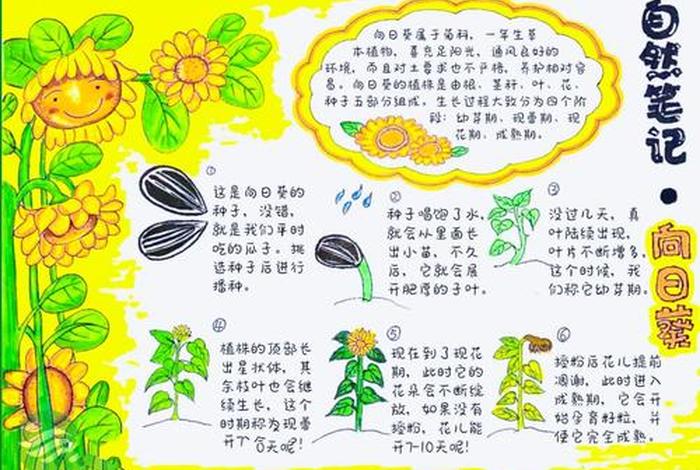 自然笔记·
向日葵
向日葵属于菊科，一年生草
本植物，喜充足阳光，通风良好的
环境，而且对土要求也不严格，养护相对容
易。向日葵的植株是由根、茎秆、叶、花、
种子五部分组成。生长过程大致分为四个阶
段：幼芽期、现蕾期、现
花期、成熟期。
①
这是向日葵的
种子，没错，
就是我们平时
吃的瓜子。挑
选种子后进行
播种。
②
种子喝饱了水，
就会从里面长
出小苗，不久
后，它就会展
开肥厚的子叶。
③
没过几天，真
叶陆续出现，
叶片不断增多。
这个时候，我
们称它幼芽期。
④
植株的顶部长
出星状体，其
余枝叶也会继
续生长，这个
时期称为现蕾
天呢！
⑤
现在到了现花
期，此时它的
花朵会不断绽
放，如果没有
授粉，花儿能
开7-10天呢！
⑥
授粉后花儿提前
凋谢，此时进入
成熟期，它会开
始孕育籽粒，并
使它完全成熟。